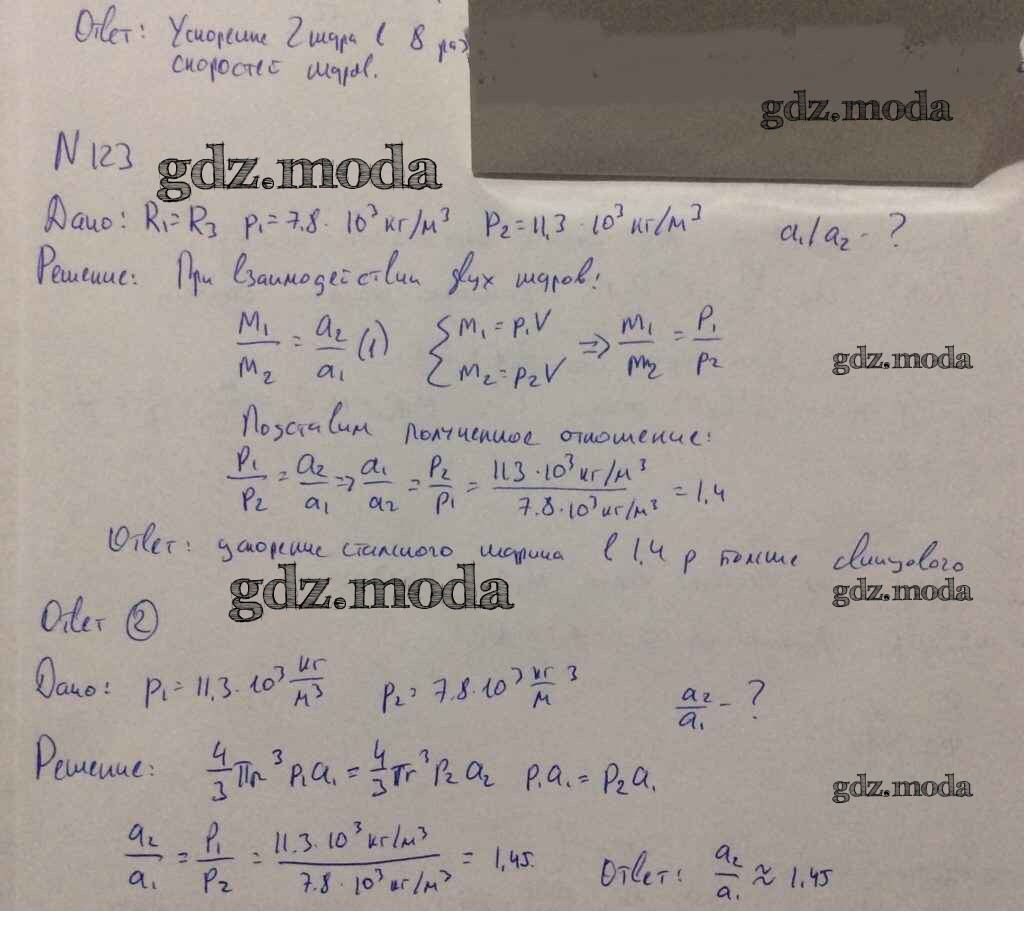 Ответ: Ускорение 2 шара в 8 раз
скоростей шаров.
gdz.moda
N 123
gdz.moda
Дано: R₁=R₃ p₁=7.8 · 10³ кг/м³ P₂=11,3 · 10³ кг/м³ a₁/a₂ - ?
Решение: При взаимодействии двух шаров:
M₁/M₂ = a₂/a₁ (1) { M₁ = p₁V M₂ = p₂V => M₁/M₂ = P₁/P₂
gdz.moda
Подставим полученное отношение:
P₁/P₂ = a₂/a₁ => a₁/a₂ = P₂/P₁ = 11.3 · 10³ кг/м³ / 7.8 · 10³ кг/м³ = 1,4
Ответ: ускорение стального шарика в 1,4 р больше свинцового
gdz.moda
gdz.moda
Ответ ②
Дано: p₁ = 11,3 · 10³ кг/м³ p₂ = 7.8 · 10³ кг/м ³ a₂/a₁ - ?
Решение: 4/3 πr³ p₁a₁ = 4/3 πr³ p₂ a₂ p₁a₁ = p₂a₁
gdz.moda
a₂/a₁ = P₁/P₂ = 11.3 · 10³ кг/м³ / 7.8 · 10³ кг/м³ = 1,45. Ответ: a₂/a₁ ≈ 1.45